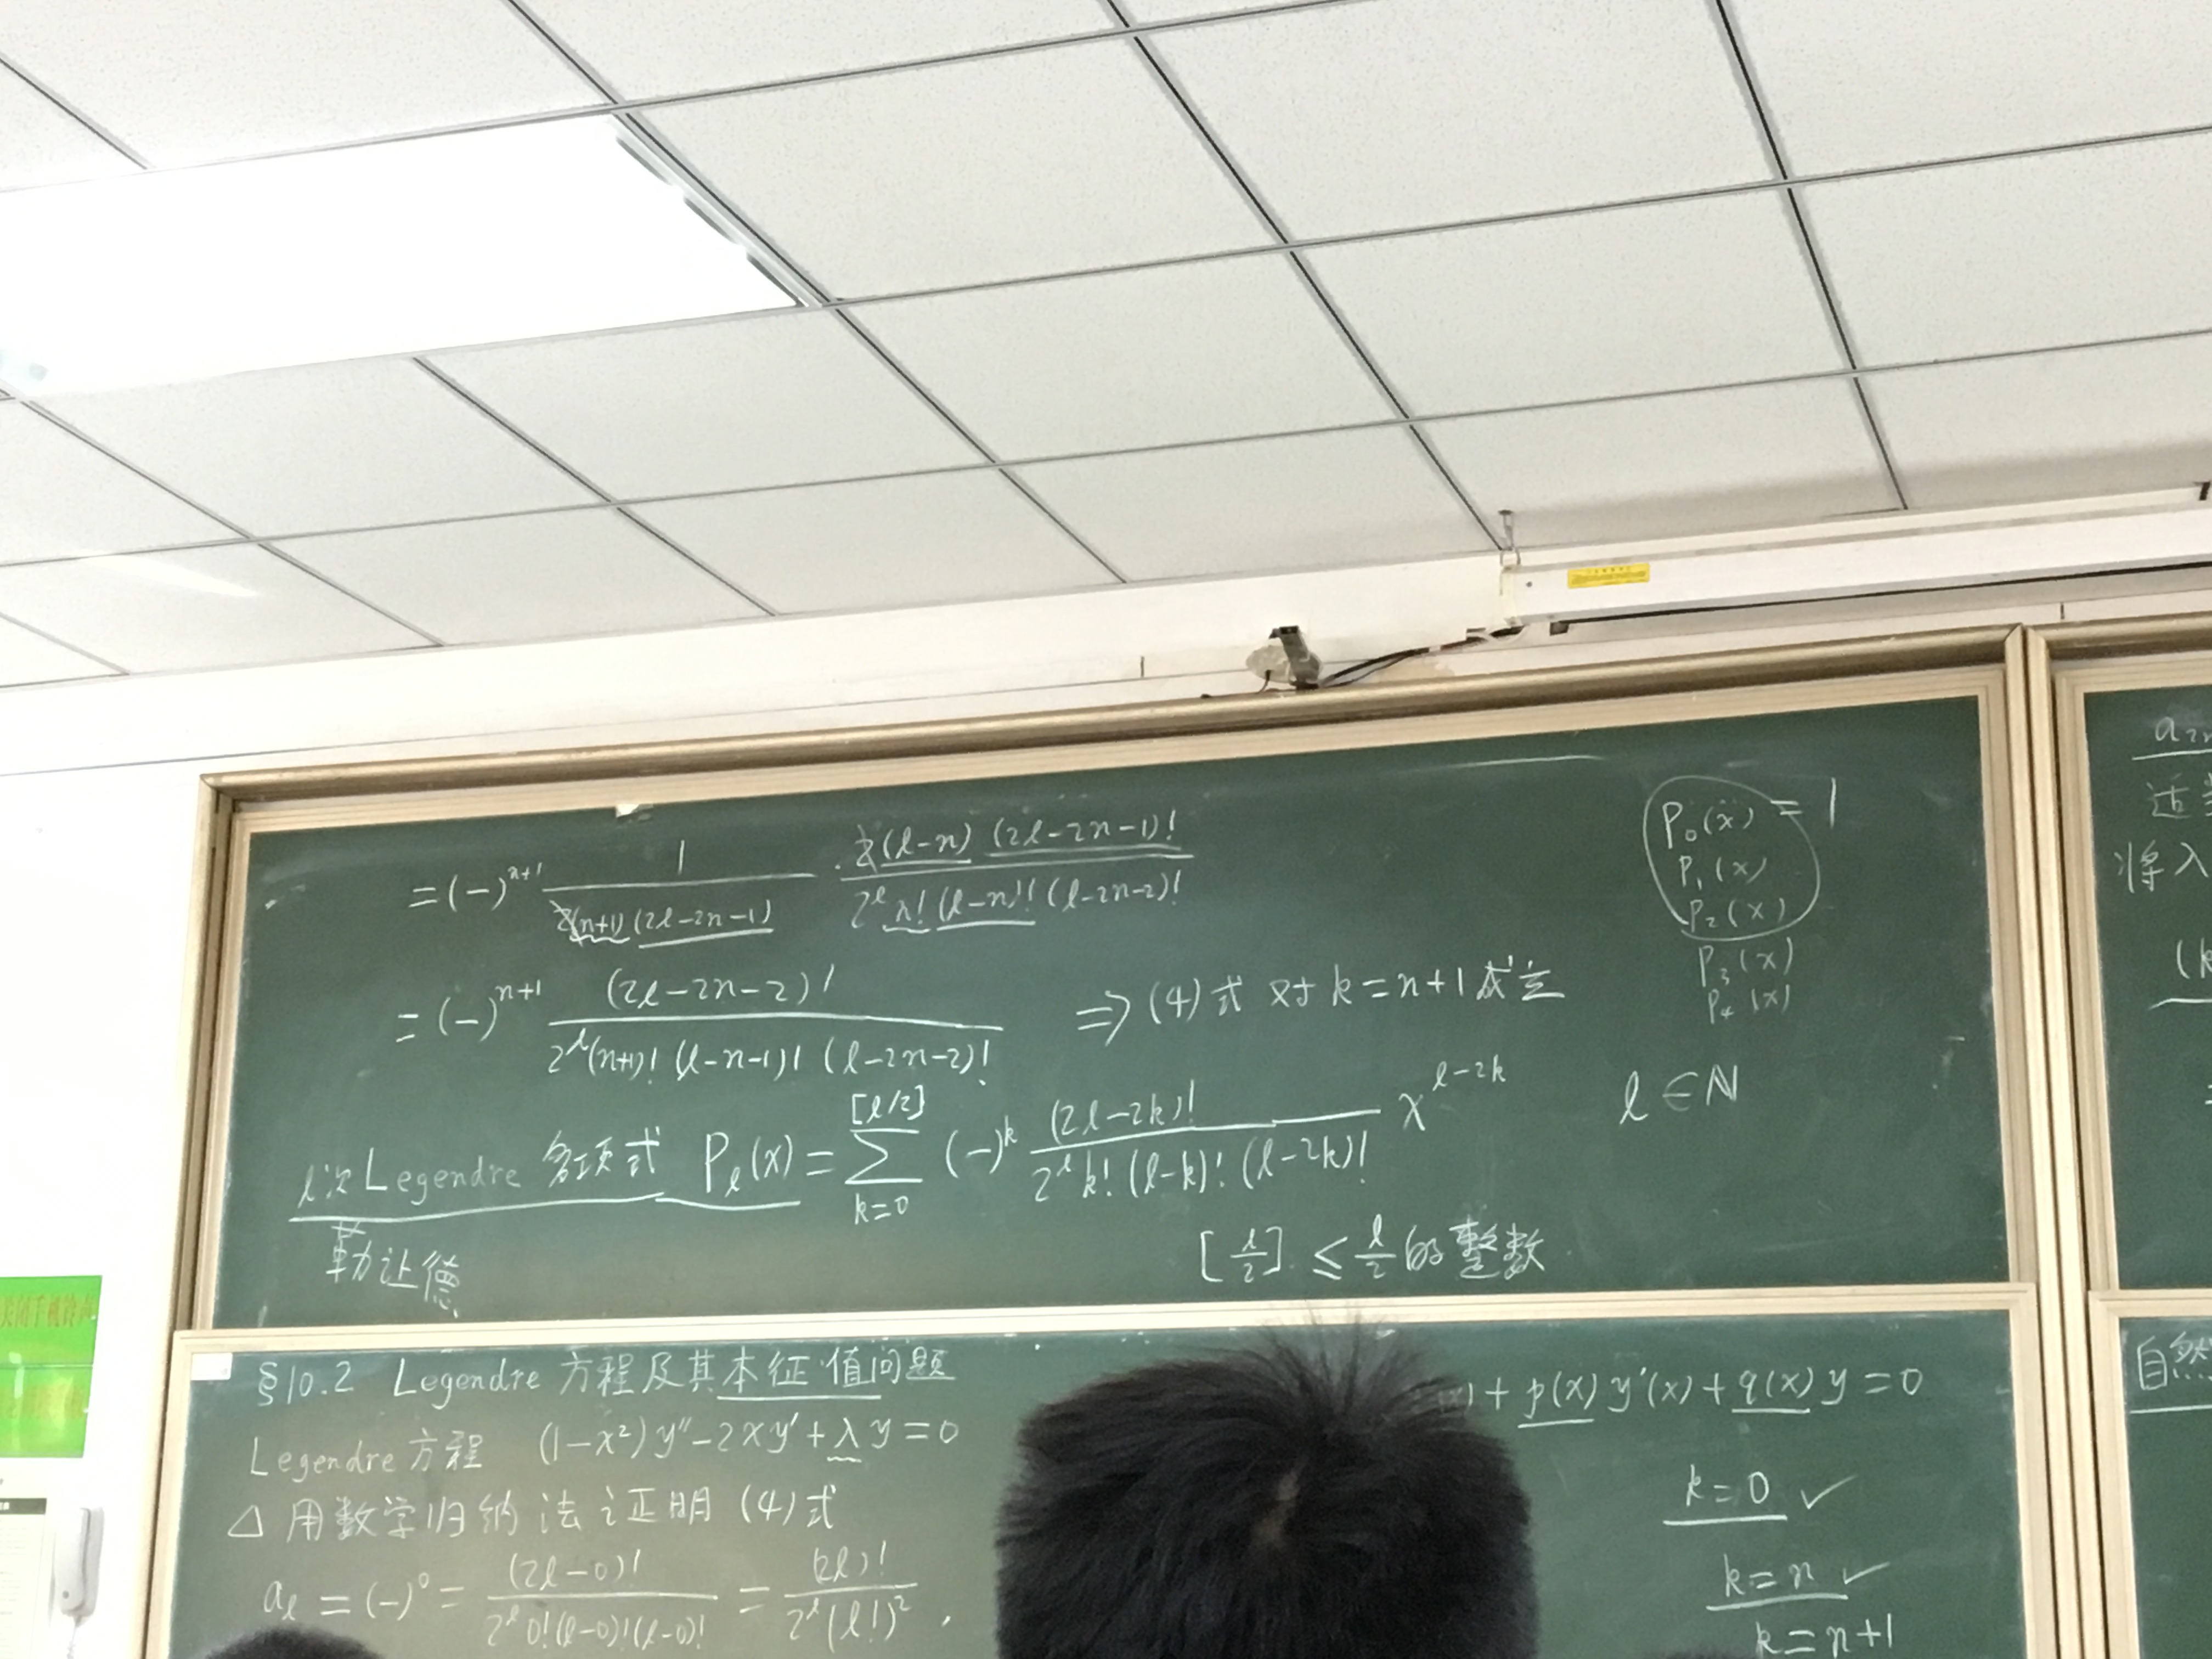 = (-)^{n+1} \frac{1}{2(n+1)(2l-2n-1)} · \frac{2(l-n)(2l-2n-1)!}{2^l n!(l-n)!(l-2n-2)!}
= (-)^{n+1} \frac{(2l-2n-2)!}{2^l(n+1)!(l-n-1)!(l-2n-2)!} ⇒ (4)式 对 k=n+1 成立
l次 Legendre 多项式 P_l(x) = \sum_{k=0}^{[l/2]} (-)^k \frac{(2l-2k)!}{2^l k!(l-k)!(l-2k)!} x^{l-2k} l∈ℕ
勒让德
[\frac{l}{2}] ≤ \frac{l}{2} 的整数
P_0(x) = 1
P_1(x)
P_2(x)
P_3(x)
P_4(x)
§10.2 Legendre 方程及其本征值问题
Legendre 方程 (1-x²)y″-2xy′+λy=0
△ 用数学归纳法证明 (4)式
a_l = (-)^0 = \frac{(2l-0)!}{2^l 0!(l-0)!(l-0)!} = \frac{(2l)!}{2^l(l!)^2} ,
+ p(x) y′(x) + q(x) y = 0
k=0 ✓
k=n ✓
k=n+1
将入
自然
关闭手机铃声